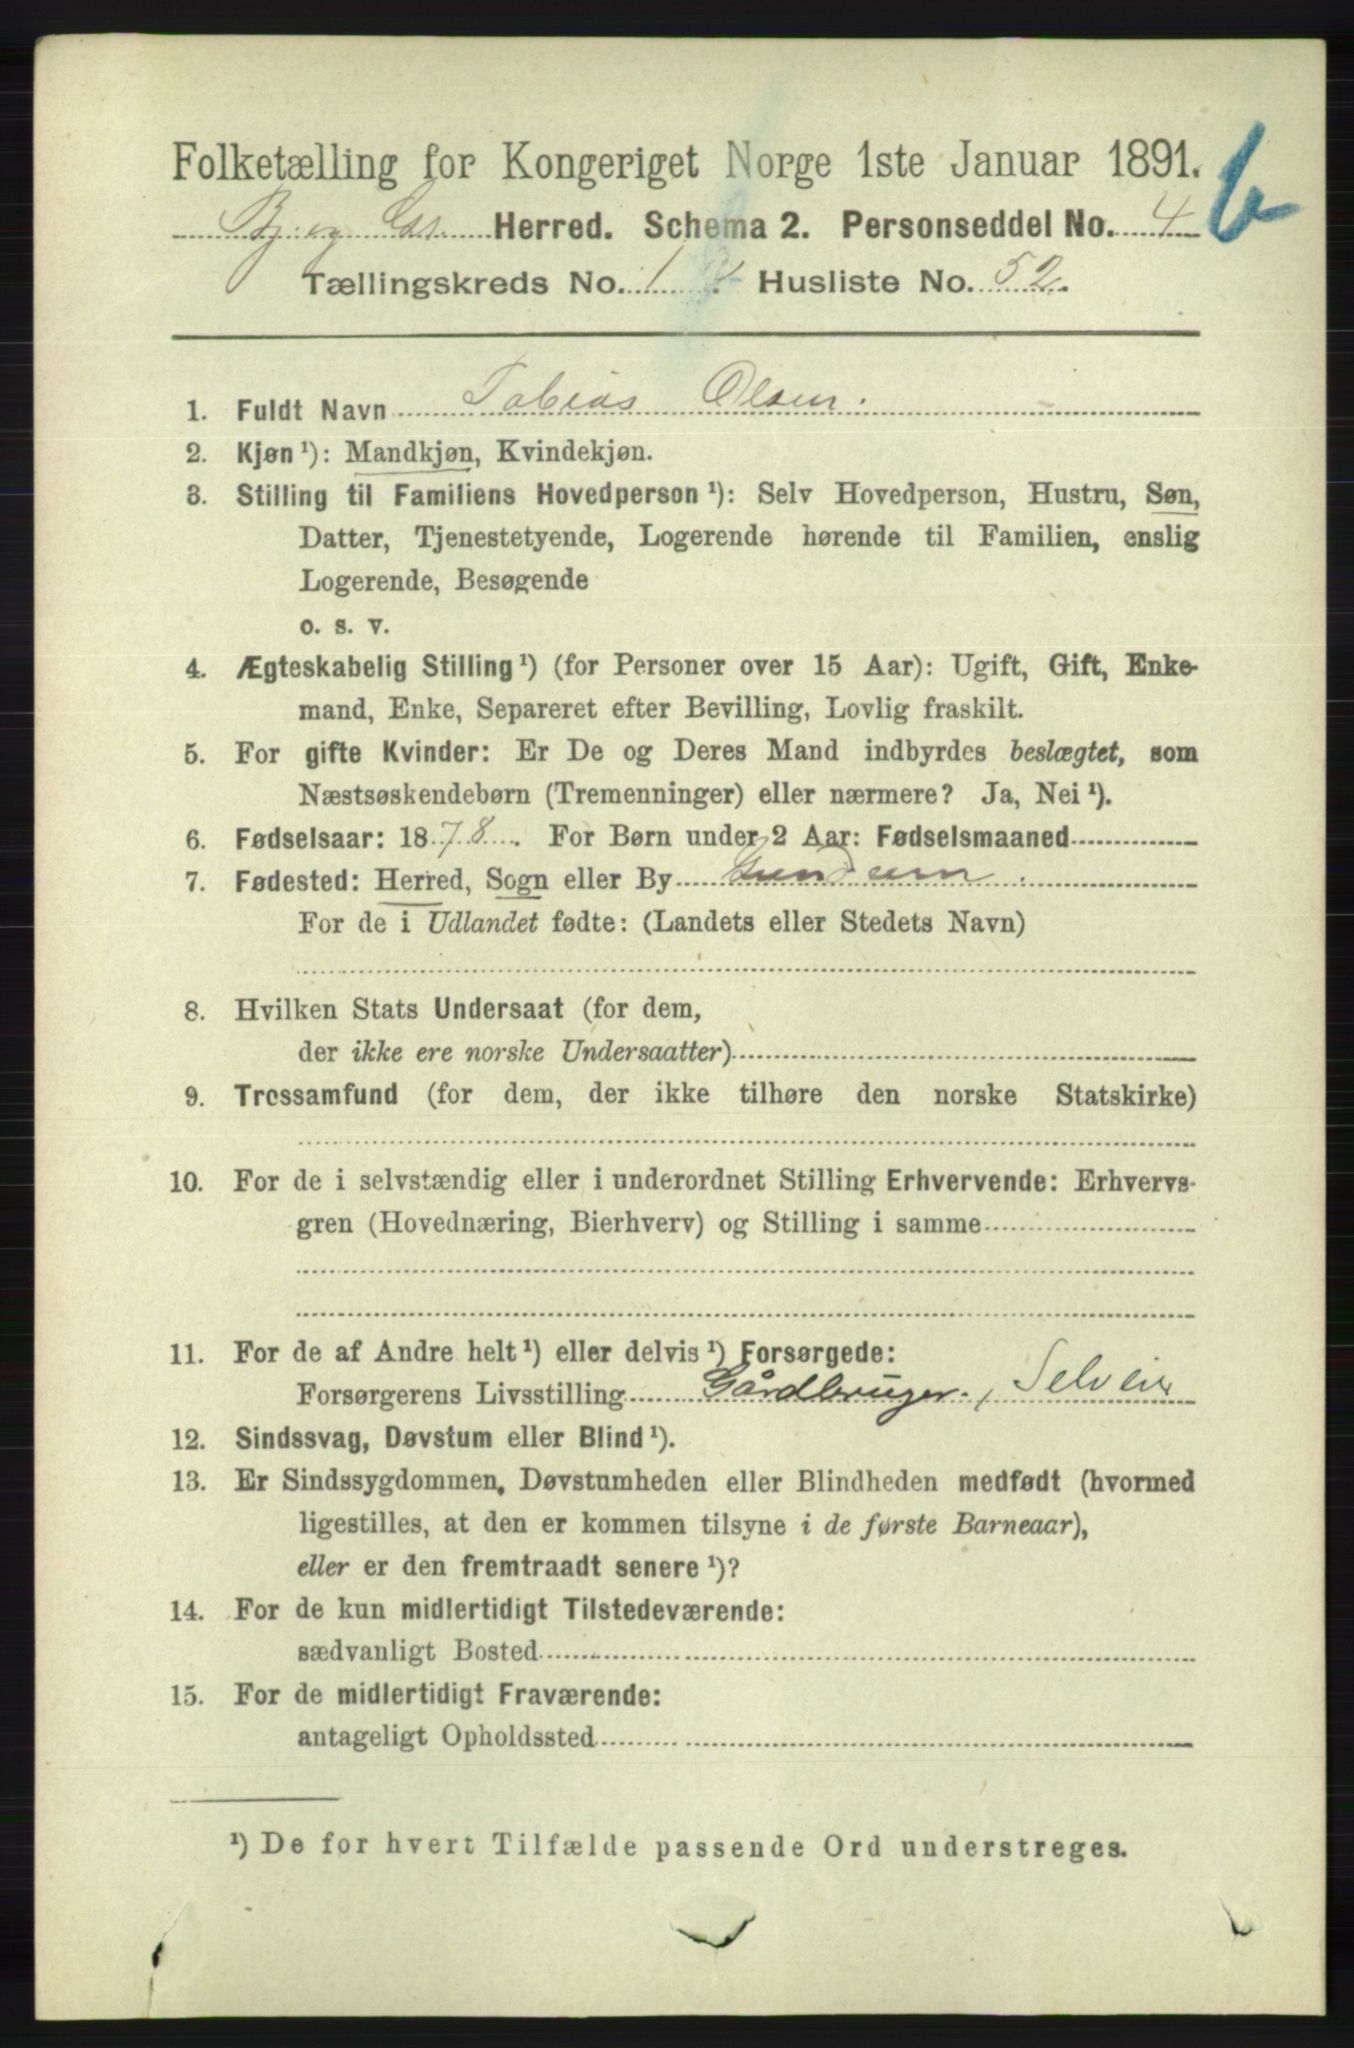 Folketælling for Kongeriget Norge 1ste Januar 1891.
b
Bj. og Herred. Schema 2. Personseddel No. 4
Tællingskreds No. 1 Husliste No. 52.
1. Fuldt Navn Tobias Olsen.
2. Kjøn ¹): Mandkjøn, Kvindekjøn.
3. Stilling til Familiens Hovedperson ¹): Selv Hovedperson, Hustru, Søn,
Datter, Tjenestetyende, Logerende hørende til Familien, enslig
Logerende, Besøgende
o. s. v.
4. Ægteskabelig Stilling ¹) (for Personer over 15 Aar): Ugift, Gift, Enke-
mand, Enke, Separeret efter Bevilling, Lovlig fraskilt.
5. For gifte Kvinder: Er De og Deres Mand indbyrdes beslægtet, som
Næstsøskendebørn (Tremenninger) eller nærmere? Ja, Nei ¹).
6. Fødselsaar: 1878. For Børn under 2 Aar: Fødselsmaaned
7. Fødested: Herred, Sogn eller By
For de i Udlandet fødte: (Landets eller Stedets Navn)
8. Hvilken Stats Undersaat (for dem,
der ikke ere norske Undersaatter)
9. Trossamfund (for dem, der ikke tilhøre den norske Statskirke)
10. For de i selvstændig eller i underordnet Stilling Erhvervende: Erhvervs-
gren (Hovednæring, Bierhverv) og Stilling i samme
11. For de af Andre helt ¹) eller delvis ¹) Forsørgede:
Forsørgerens Livsstilling Gårdbruger, Selveier
12. Sindssvag, Døvstum eller Blind ¹).
13. Er Sindssygdommen, Døvstumheden eller Blindheden medfødt (hvormed
ligestilles, at den er kommen tilsyne i de første Barneaar),
eller er den fremtraadt senere ¹)?
14. For de kun midlertidigt Tilstedeværende:
sædvanligt Bosted
15. For de midlertidigt Fraværende:
antageligt Opholdssted
¹) De for hvert Tilfælde passende Ord understreges.